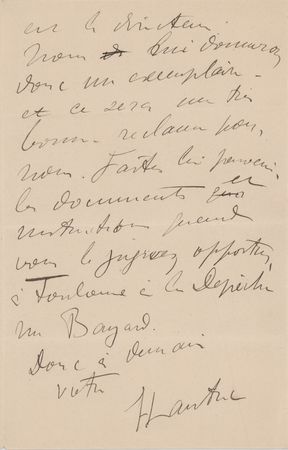 est le directeur.
Nous lui donnerons
donc un exemplaire -
et ce sera une très
bonne réclame pour
nous. Faites lui parvenir
les documents et
instructions quand
vous le jugerez opportun,
à Toulouse à la Dépêche
Mr Bayard.
Donc à demain
votre
HLautrec